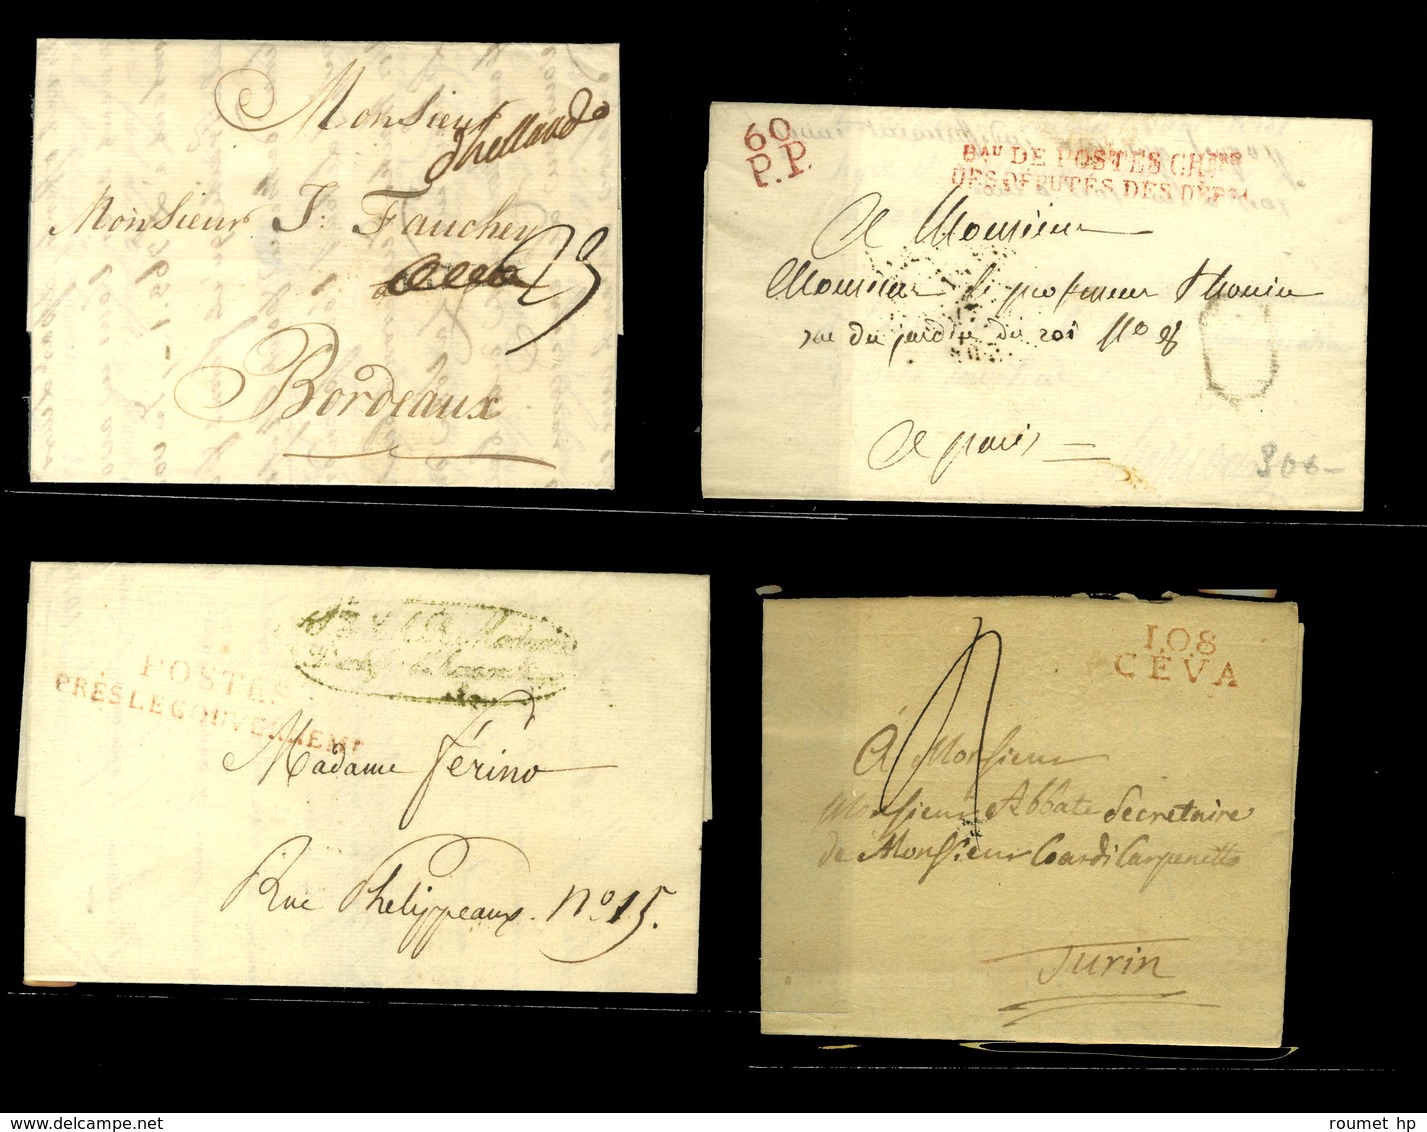 Monsieur
Monsieur J: Fauchey
23
Bordeaux
60
P.P.
Bau DE POSTES CHbre
DES DÉPUTÉS DES DÉPts
A Monsieur
Monsieur le professeur Thouin
rue du jardin du roi No 8
A paris
306-
POSTES
PRÈS LE GOUVERNEMt
Madame Férino
Rue Phelippeaux. No. 15.
108
CÉVA
4
À Monsieur
Monsieur Abbate Secretaire
de Monsieur Coardi Carpenetto
Turin
roumet hp